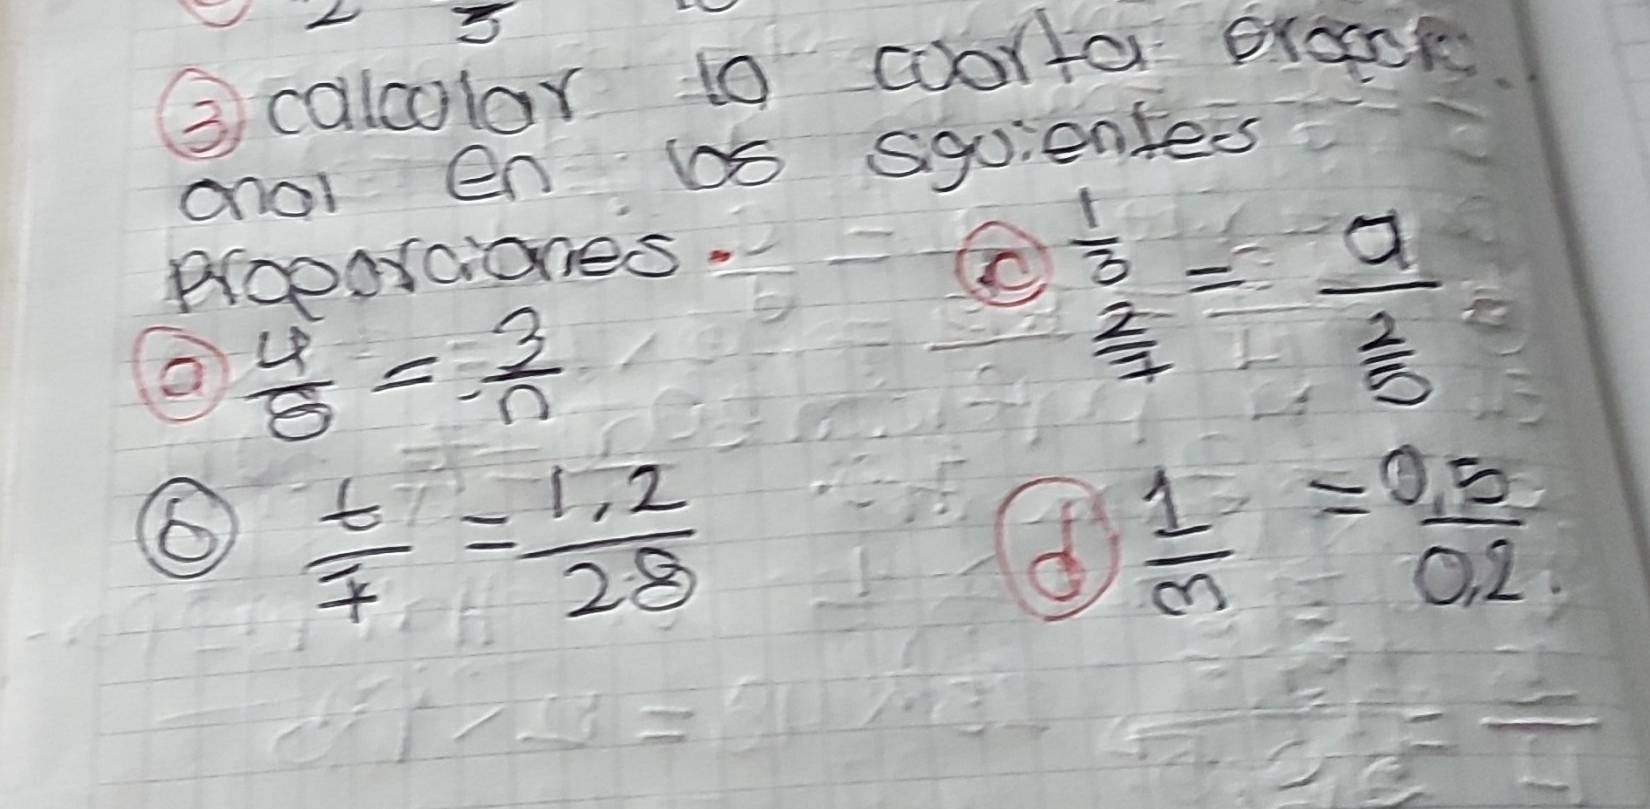 2 5
③ calcular la cuarta propor
anal en las siguientes
proporciones.
ⓐ 4/8 = 3/n
ⓑ t/7 = 1,2/28
ⓒ 1/3 / 2/7 = a / 2/5
ⓓ 1/m = 0,5/0,2.